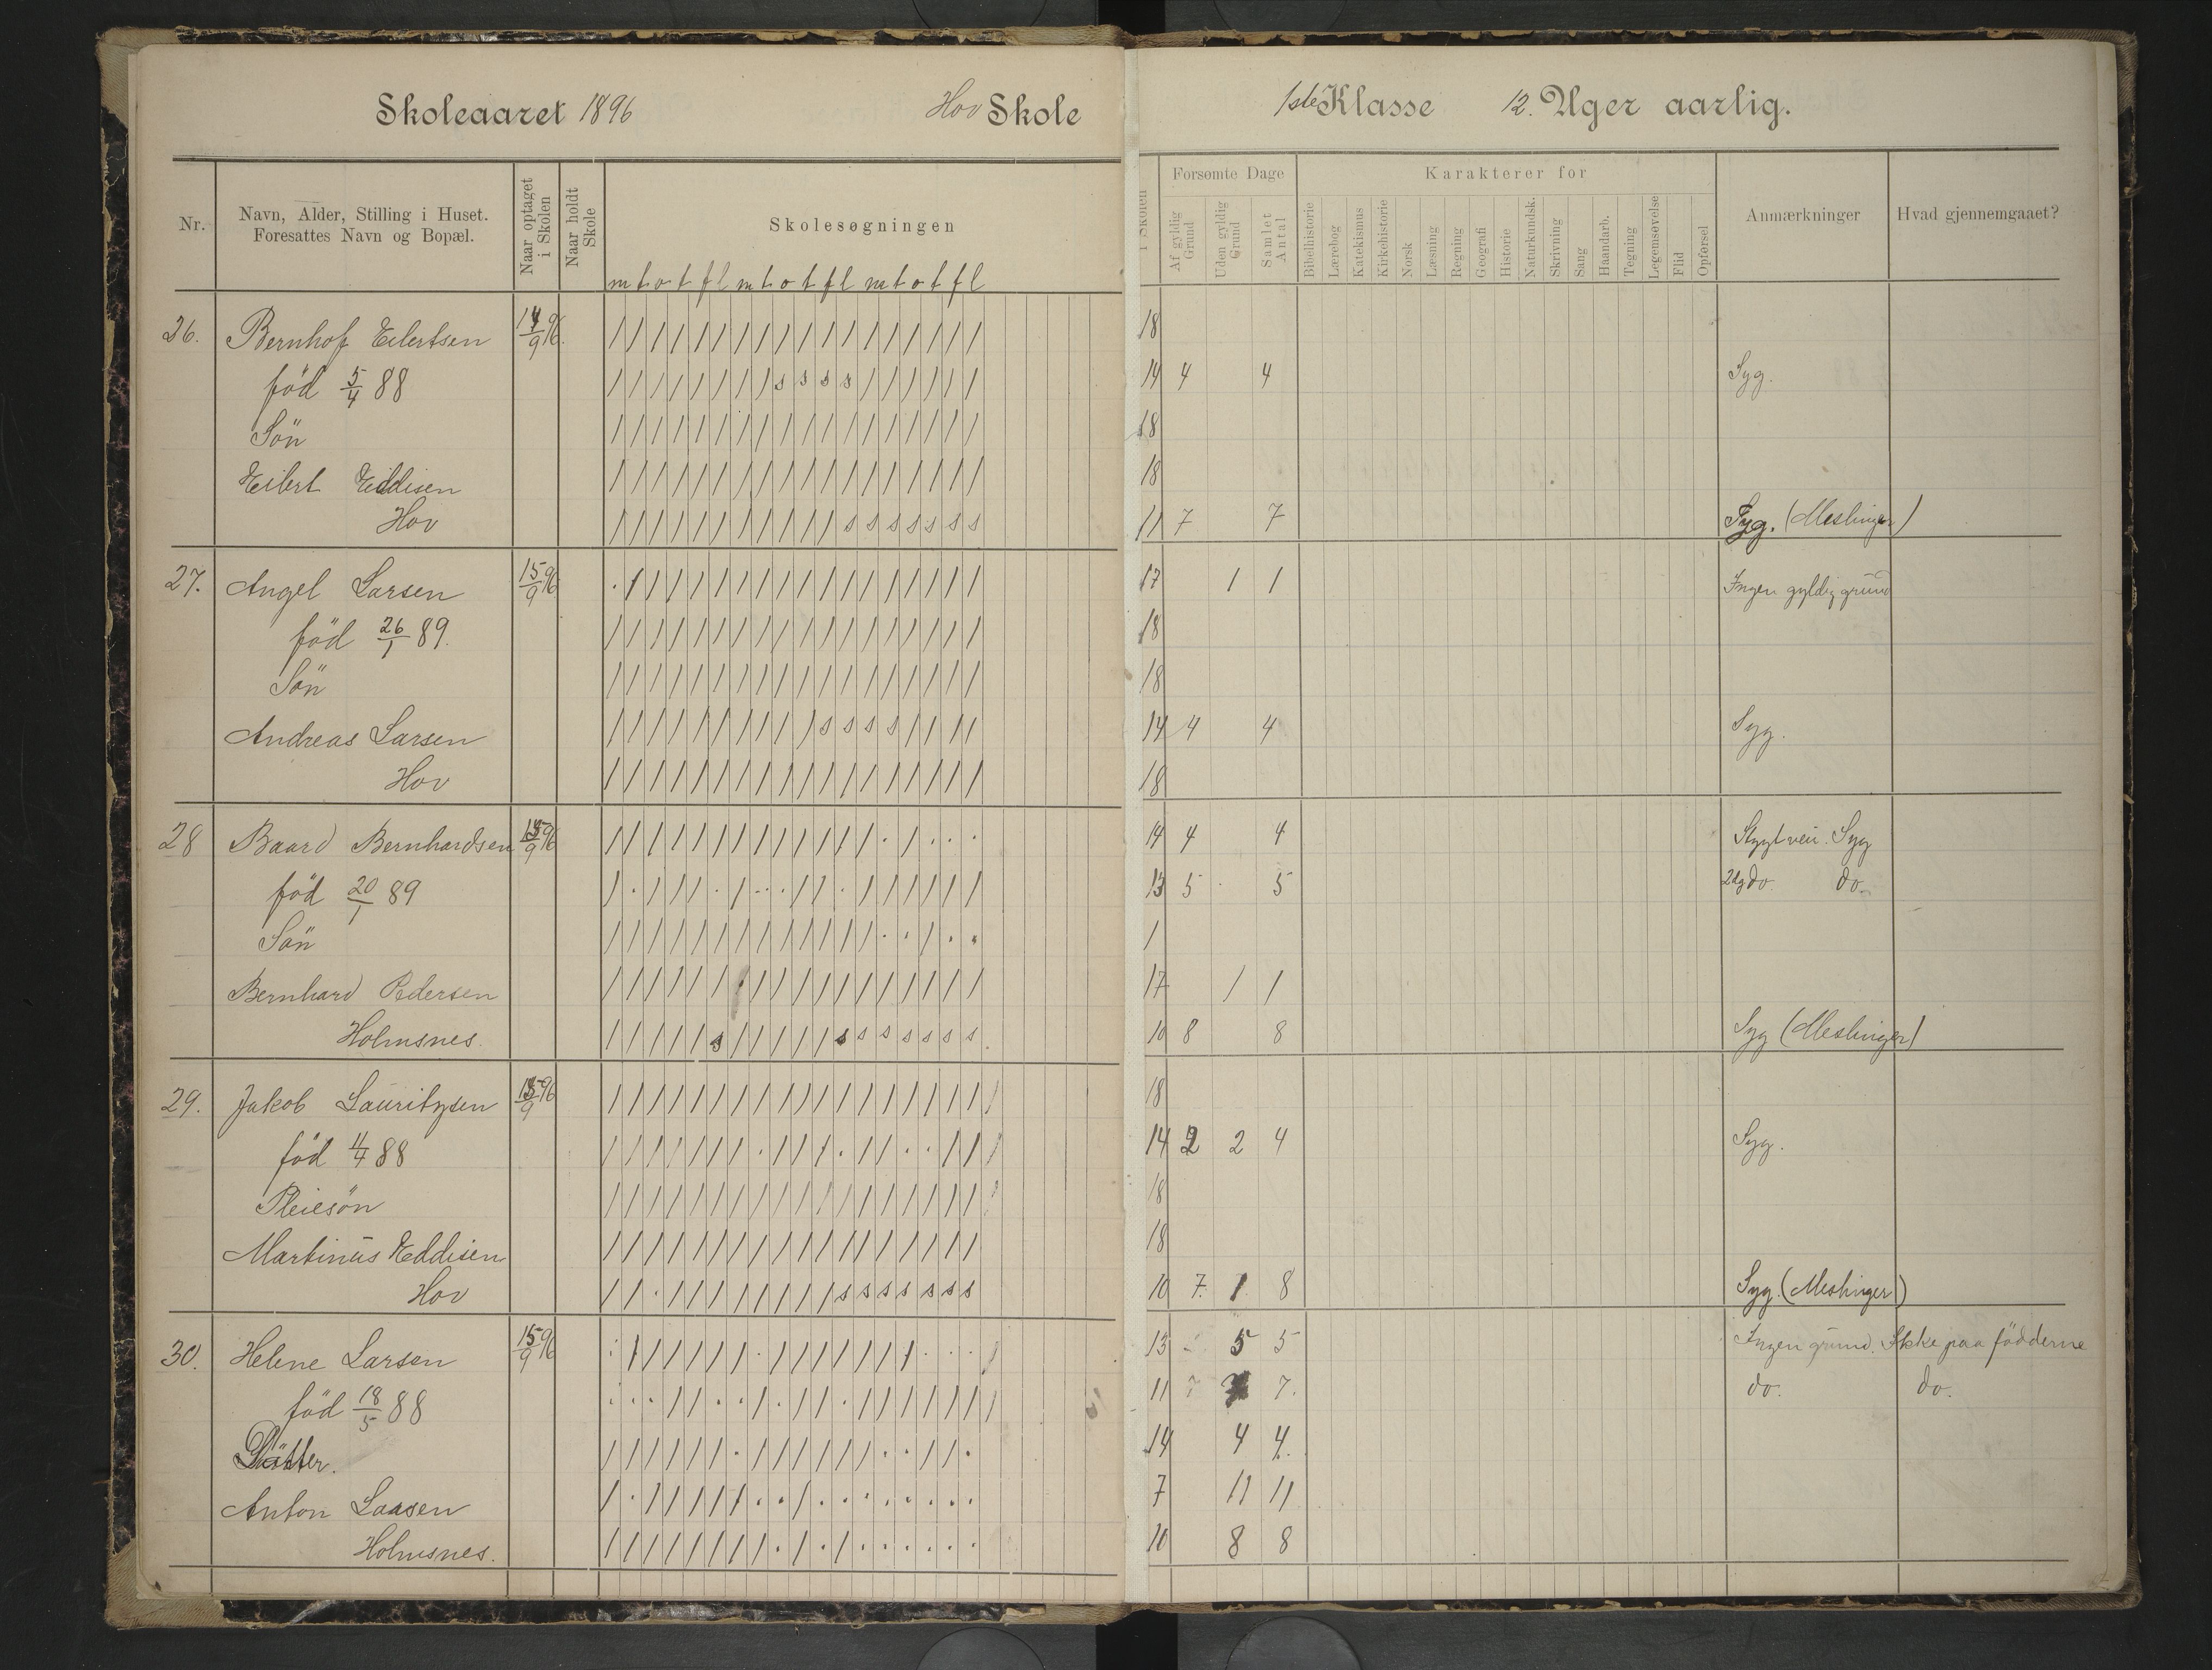 Skoleaaret 1896 Hov Skole 1ste Klasse 12. Uger aarlig.
Nr.
Navn, Alder, Stilling i Huset.
Foresattes Navn og Bopæl.
Naar optaget
i Skolen
Naar holdt
Skole
Skolesøgningen
m t o t f l m t o t f l m t o t f l
i Skolen
Forsømte Dage
Af gyldig
Grund
Uden gyldig
Grund
Samlet
Antal
Karakterer for
Bibelhistorie
Lærebog
Katekismus
Kirkehistorie
Norsk
Læsning
Regning
Geografi
Historie
Naturkundsk.
Skrivning
Sang
Haandarb.
Tegning
Legemsøvelse
Flid
Opførsel
Anmærkninger
Hvad gjennemgaaet?
26. Bernhof Eilertsen 14/9 96. / / / / / / / / / / / / / / / / / / 18
föd 5/4 88 / / / / / / / / s s s s / / / / / / 14 4 4 Syg.
Sön / / / / / / / / / / / / / / / / / / 18
Eilert Eddisen / / / / / / / / / / / / / / / / / / 18
Hov / / / / / / / / / / / s s s s s s s 11 7 7 Syg. (Meslinger)
27. Angel Larsen 15/9 96 . / / / / / / / / / / / / / / / / / 17 1 1 Ingen gyldig grund
föd 26/1 89. / / / / / / / / / / / / / / / / / / 18
Sön / / / / / / / / / / / / / / / / / / 18
Andreas Larsen / / / / / / / / / / s s s s / / / / 14 4 4 Syg.
Hov / / / / / / / / / / / / / / / / / / 18
28 Baard Bernhardsen 15/9 96 / / / / / / / / / / / / / . / . . . 14 4 4 Stygt veir. Syg
föd 20/1 89 / . / / / . / . . . / / . / / / / / / 13 5 5 2dg do. do.
Sön / / / / / / / / / / / / / . . / . . 1
Bernhard Pedersen / / / / / / / / / / / / / / / / / / 17 1 1
Holmsnes. / / / / / s / / / / / s s s s s s s 10 8 8 Syg (Meslinger)
29. Jakob Lauritzsen 15/9 96 / / / / / / / / / / / / / / / / / / / 18
föd 11/4 88 / / / / / / / . / / / . / / . . / / / 14 2 2 4 Syg.
Pleiesön / / / / / / / / / / / / / / / / / / / 18
Martinus Eddisen / / / / / / / / / / / / / / / / / / 18
Hov / / . / / / / / / / / s s s s s s s 10 7. 1 8 Syg. (Meslinger)
30. Helene Larsen 15/9 96 . / / / / / / . / / / / / / / . . . / 13 5 5 Ingen grund. Ikke paa födderne
föd 18/5 88 . . . / / . . / . / / . / / / / / / / 11 7. do. do.
Datter. / / / / / / . / / / / / / . . / / . 14 4 4.
Anton Larsen / . / / / / / . . / . . . . . . . . 7 11 11
Holmsnes. / / / / / / / / . / . / . . . . . . 10 8 8